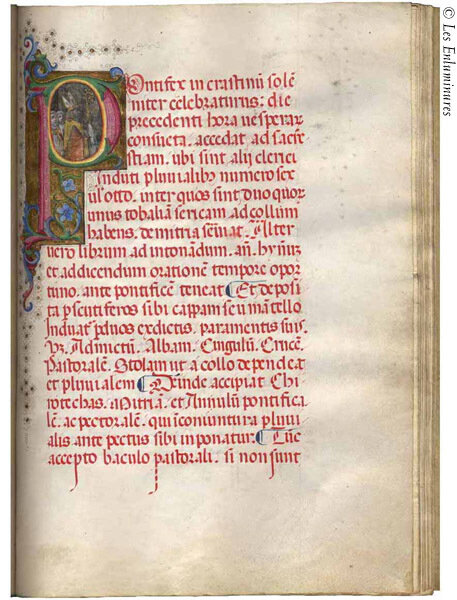 Pontifex in crastinū solē
niter celebraturus: die
precedenti hora uesperar̄
consueta. accedat ad sacri
stiam. ubi sint alij clerici
induti pluuialibȝ numero sex
uł otto. inter quos sint duo quor̄
unus tobaliā sericam ad collum
habens. de mitria seruiat. Alter
uero librum ad intonandum. an̄. hȳnū
et ad dicendum orationē tempore opor
tuno. ante pontificē teneat Et deposi
ta p scutiferos sibi cappam seu mantello
Induat pdn̄os ex dictis. paramentis suis.
Vȝ. Admictū. Albam. Cingulū. Crucē.
Pastoralē. Stolam ut a collo dependeat
et pluuialem Deinde accipiat Chi
rotechas. Mitriā. et Annulū pontifica
lē. ac pectoralē. qui coniuntura pluui
alis ante pectus sibi inponatur. Tūc
accepto baculo pastorali. si non sunt
© Les Enluminures